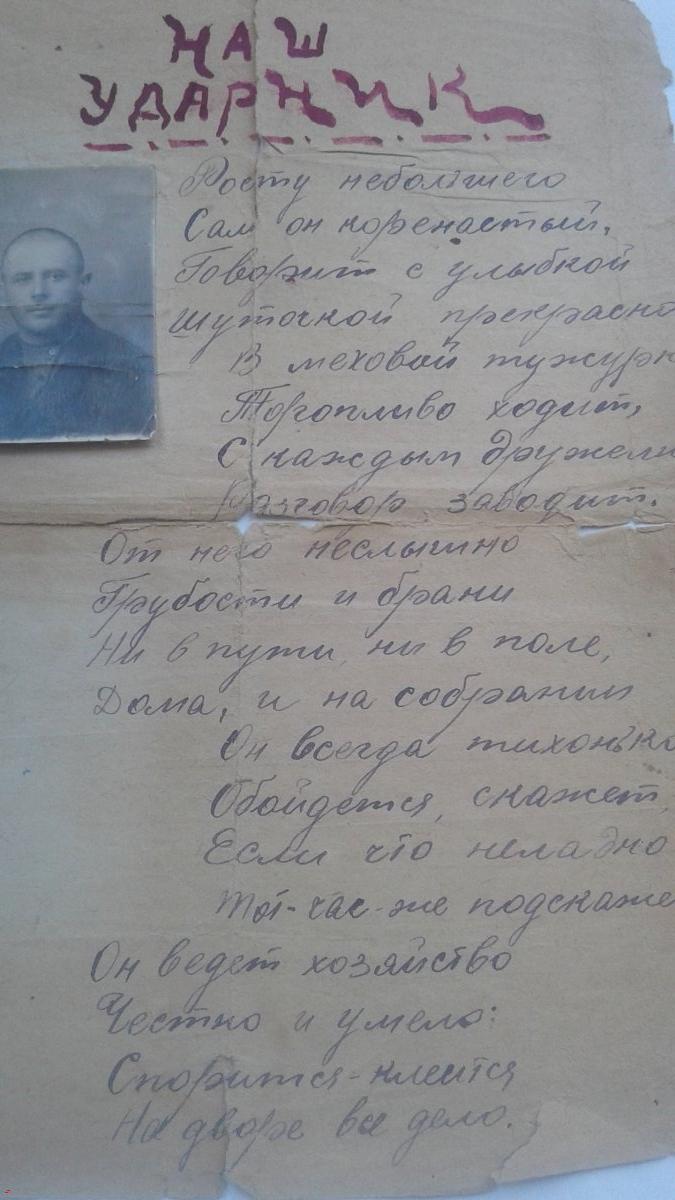 НАШ
УДАРНИК
Росту небольшего
Сам он коренастый,
Говорит с улыбкой
Шуточкой прекрасно
В меховой тужурк
Торопливо ходит,
С каждым дружелю
Разговор заводит.
От него неслышно
Грубости и брани
Ни в пути, ни в поле,
Дома, и на собрании
Он всегда тихонько
Обойдется, скажет,
Если что неладно
Тот-час-же подскаже
Он ведет хозяйство
Честно и умело:
Спорится-клеится
На дворе все дело.